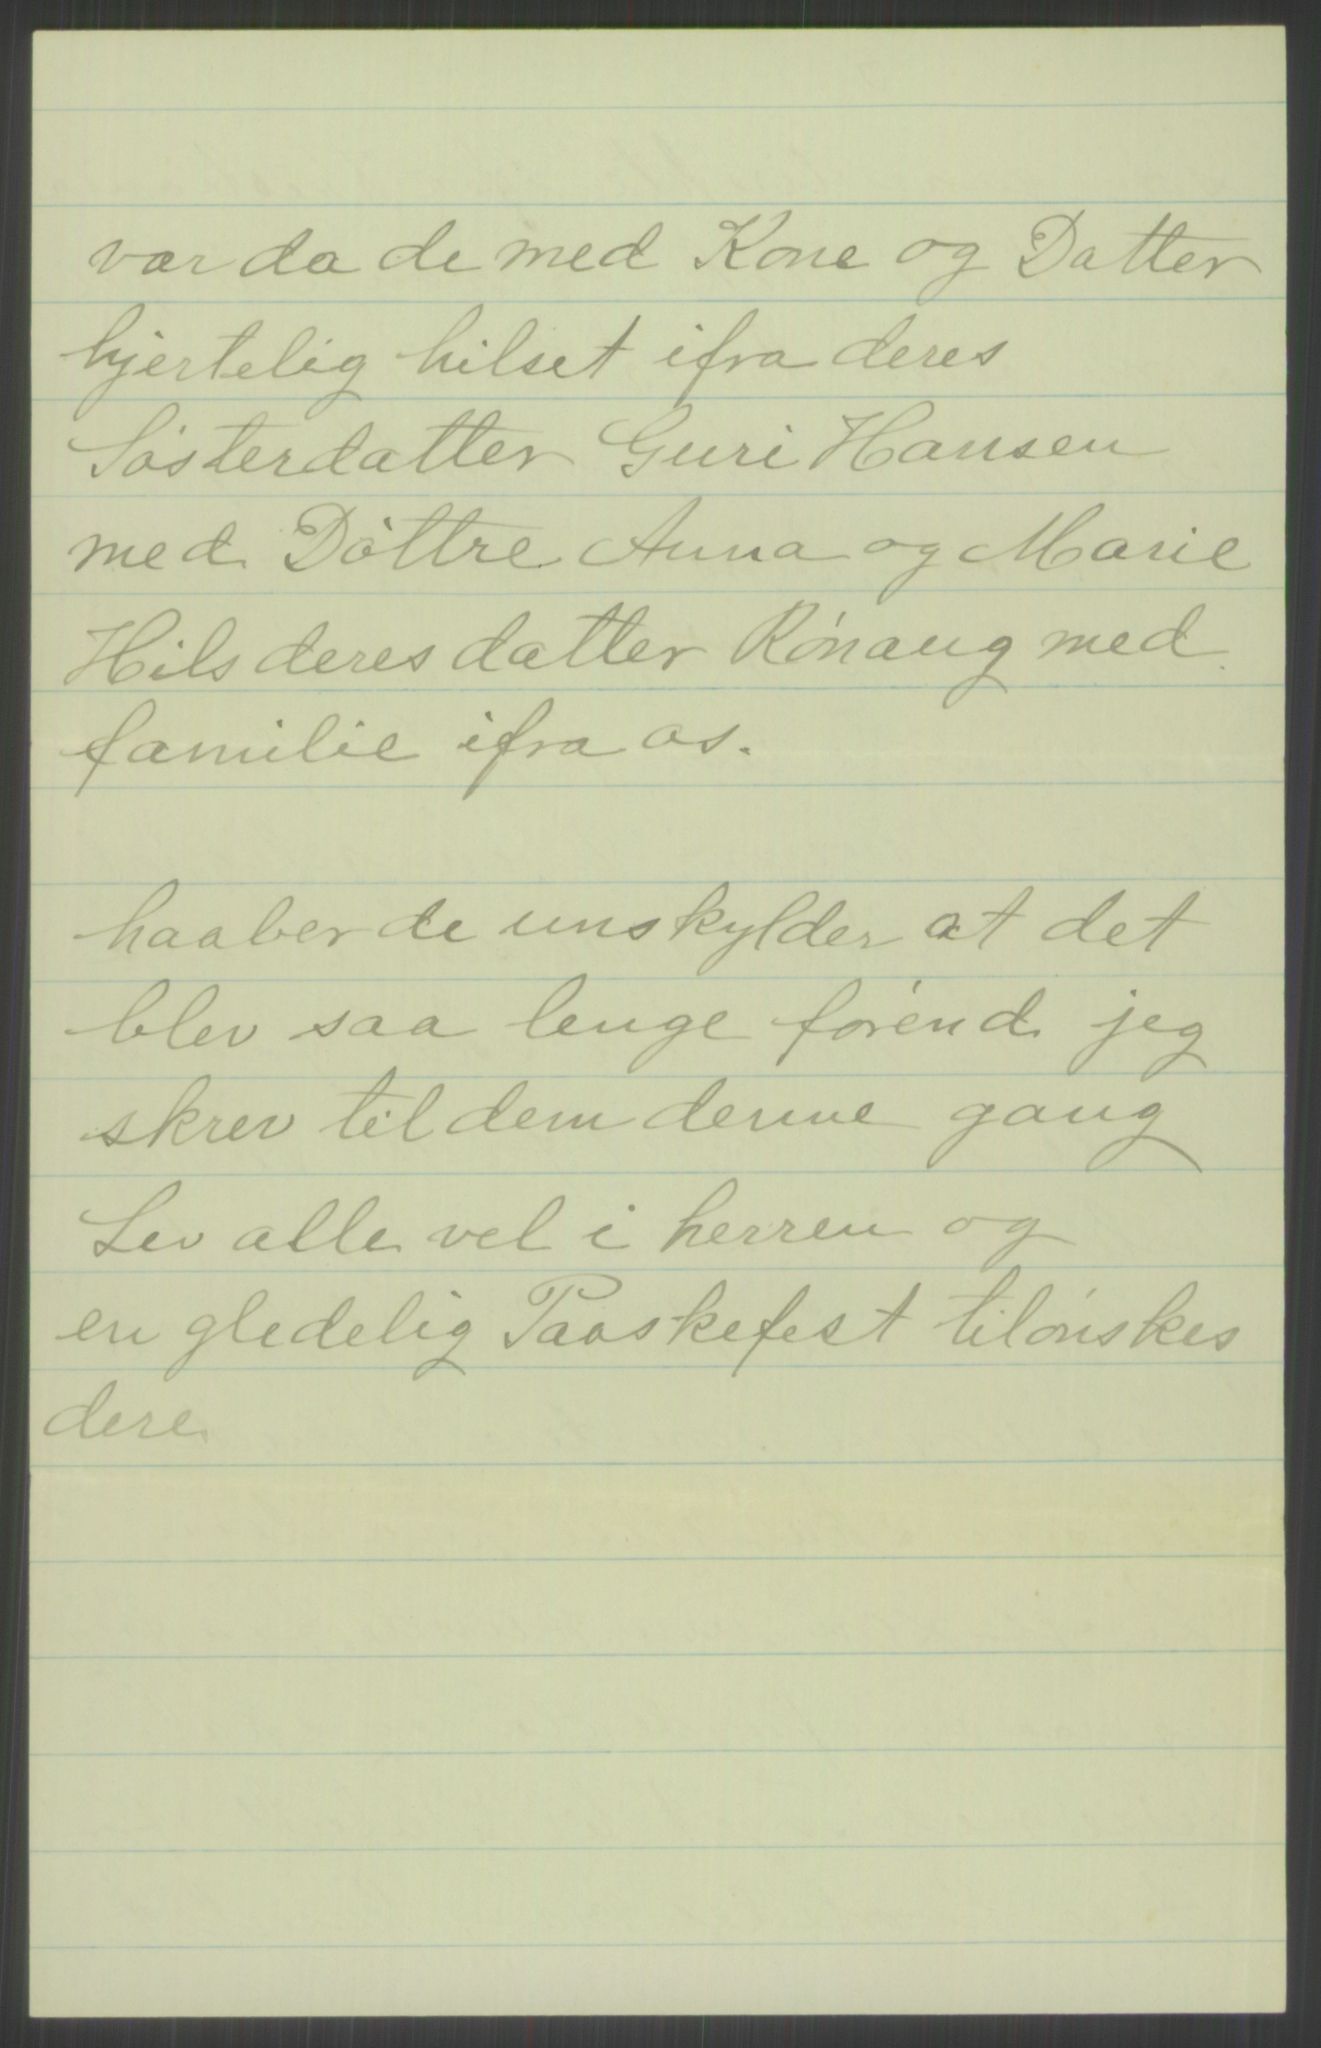 vær da de med Kone og Datter
hjertelig hilset ifra deres
Sósterdatter Guri Hansen
med Dóttre Anna og Marie
Hils deres datter Rónaug med
familie ifra os.
haaber de unskylder at det
blev saa lenge fórend jeg
skrev til dem denne gang
Lev alle vel i herren og
en gledelig Paaskefest tilónskes
dere